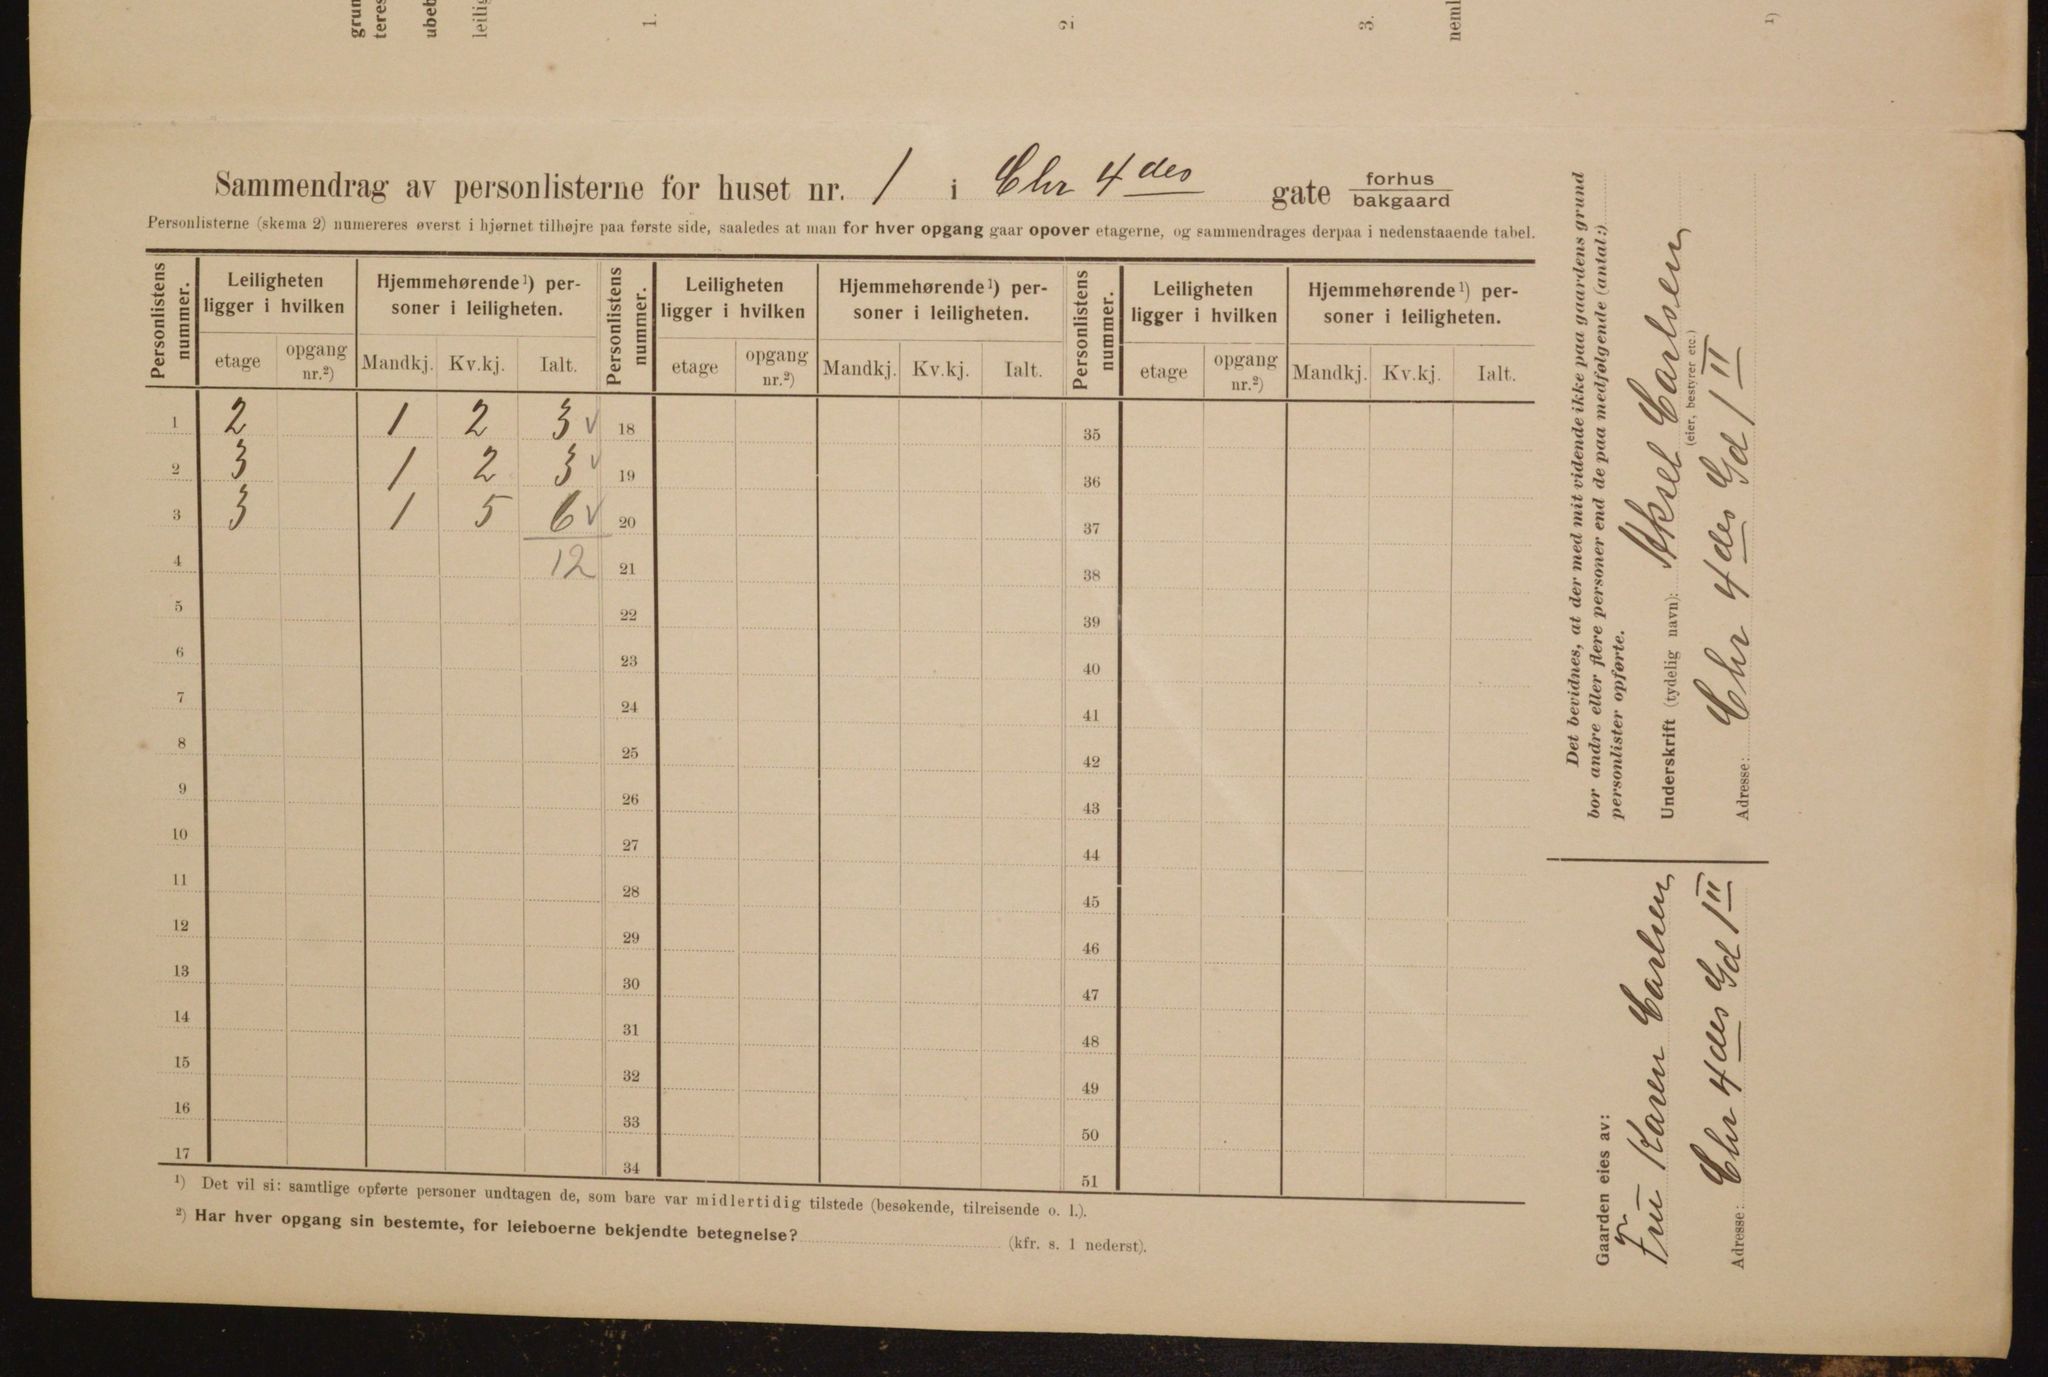 grun
teres
ubeb
leilig
1.
2.
3.
neml
1)
Sammendrag av personlisterne for huset nr. 1 i Chr 4des gate forhus
bakgaard
Personlisterne (skema 2) numereres øverst i hjørnet tilhøjre paa første side, saaledes at man for hver opgang gaar opover etagerne, og sammendrages derpaa i nedenstaaende tabel.
Personlistens nummer. Leiligheten ligger i hvilken Hjemmehørende¹) personer i leiligheten. Personlistens nummer. Leiligheten ligger i hvilken Hjemmehørende¹) personer i leiligheten. Personlistens nummer. Leiligheten ligger i hvilken Hjemmehørende¹) personer i leiligheten.
etage opgang nr.²) Mandkj. Kv.kj. Ialt. etage opgang nr.²) Mandkj. Kv.kj. Ialt. etage opgang nr.²) Mandkj. Kv.kj. Ialt.
1 2 1 2 3 v 18 35
2 3 1 2 3 v 19 36
3 3 1 5 6 v 20 37
4 12 21 38
5 22 39
6 23 40
7 24 41
8 25 42
9 26 43
10 27 44
11 28 45
12 29 46
13 30 47
14 31 48
15 32 49
16 33 50
17 34 51
¹) Det vil si: samtlige opførte personer undtagen de, som bare var midlertidig tilstede (besøkende, tilreisende o. l.).
²) Har hver opgang sin bestemte, for leieboerne bekjendte betegnelse? (kfr. s. 1 nederst).
Det bevidnes, at der med mit vidende ikke paa gaardens grund
bor andre eller flere personer end de paa medfølgende (antal:)
personlister opførte.
Underskrift (tydelig navn): Aksel Carlsen
(eier, bestyrer etc.)
Adresse: Chr 4des Gd 1 II
Gaarden eies av:
Fru Karen Carlsen
Adresse: Chr 4des Gd 1 II